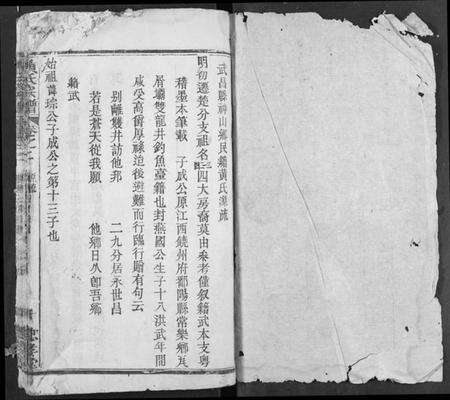 武昌縣神山鄉民籍黃氏源疏
明初遷楚分支祖名三四大房裔莫由叅考僅叙籍武本支粤
稽墨本筆載　子成公原江西饒州府鄱陽縣常樂鄉瓦
屑壩雙龍井釣魚臺籍也封燕國公生子十八洪武年間
咸受高爵厚祿迨後避難而行臨行贈有句云
别離幾井訪他邦　二九分居永世昌
若是蒼天從我願　他鄉日久卽吾鄉
籍武
始祖萬琮公子成公之第十三子也
氏宗譜 卷之